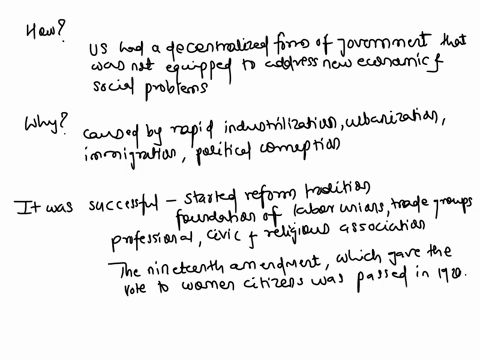 How?
US had a decentralized form of government that
was not equipped to address new economic &
social problems
Why?
caused by rapid industrilization, urbanization,
immigration, political corruption
It was successful - started reform tradition
foundation of labor unions, trade groups
professional, civic & religious association
The nineteenth amendment, which gave the
vote to women citizens was passed in 1920.